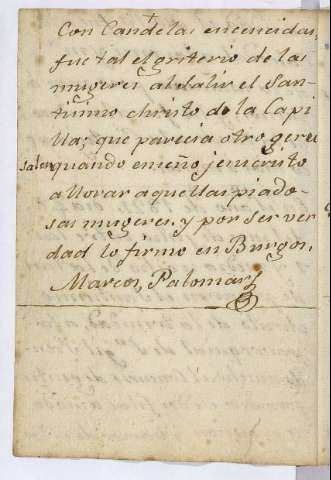 Con Candelas encendidas,
fue tal el griterio de las
mugeres al salir el San-
tisimo christo de la Capi
lla; que parecia otro geru
salen quando enseño jesucristo
a llorar aquellas piado-
sas mugeres. y por ser ver
dad lo firmo en Burgos,
Marcos Palomar